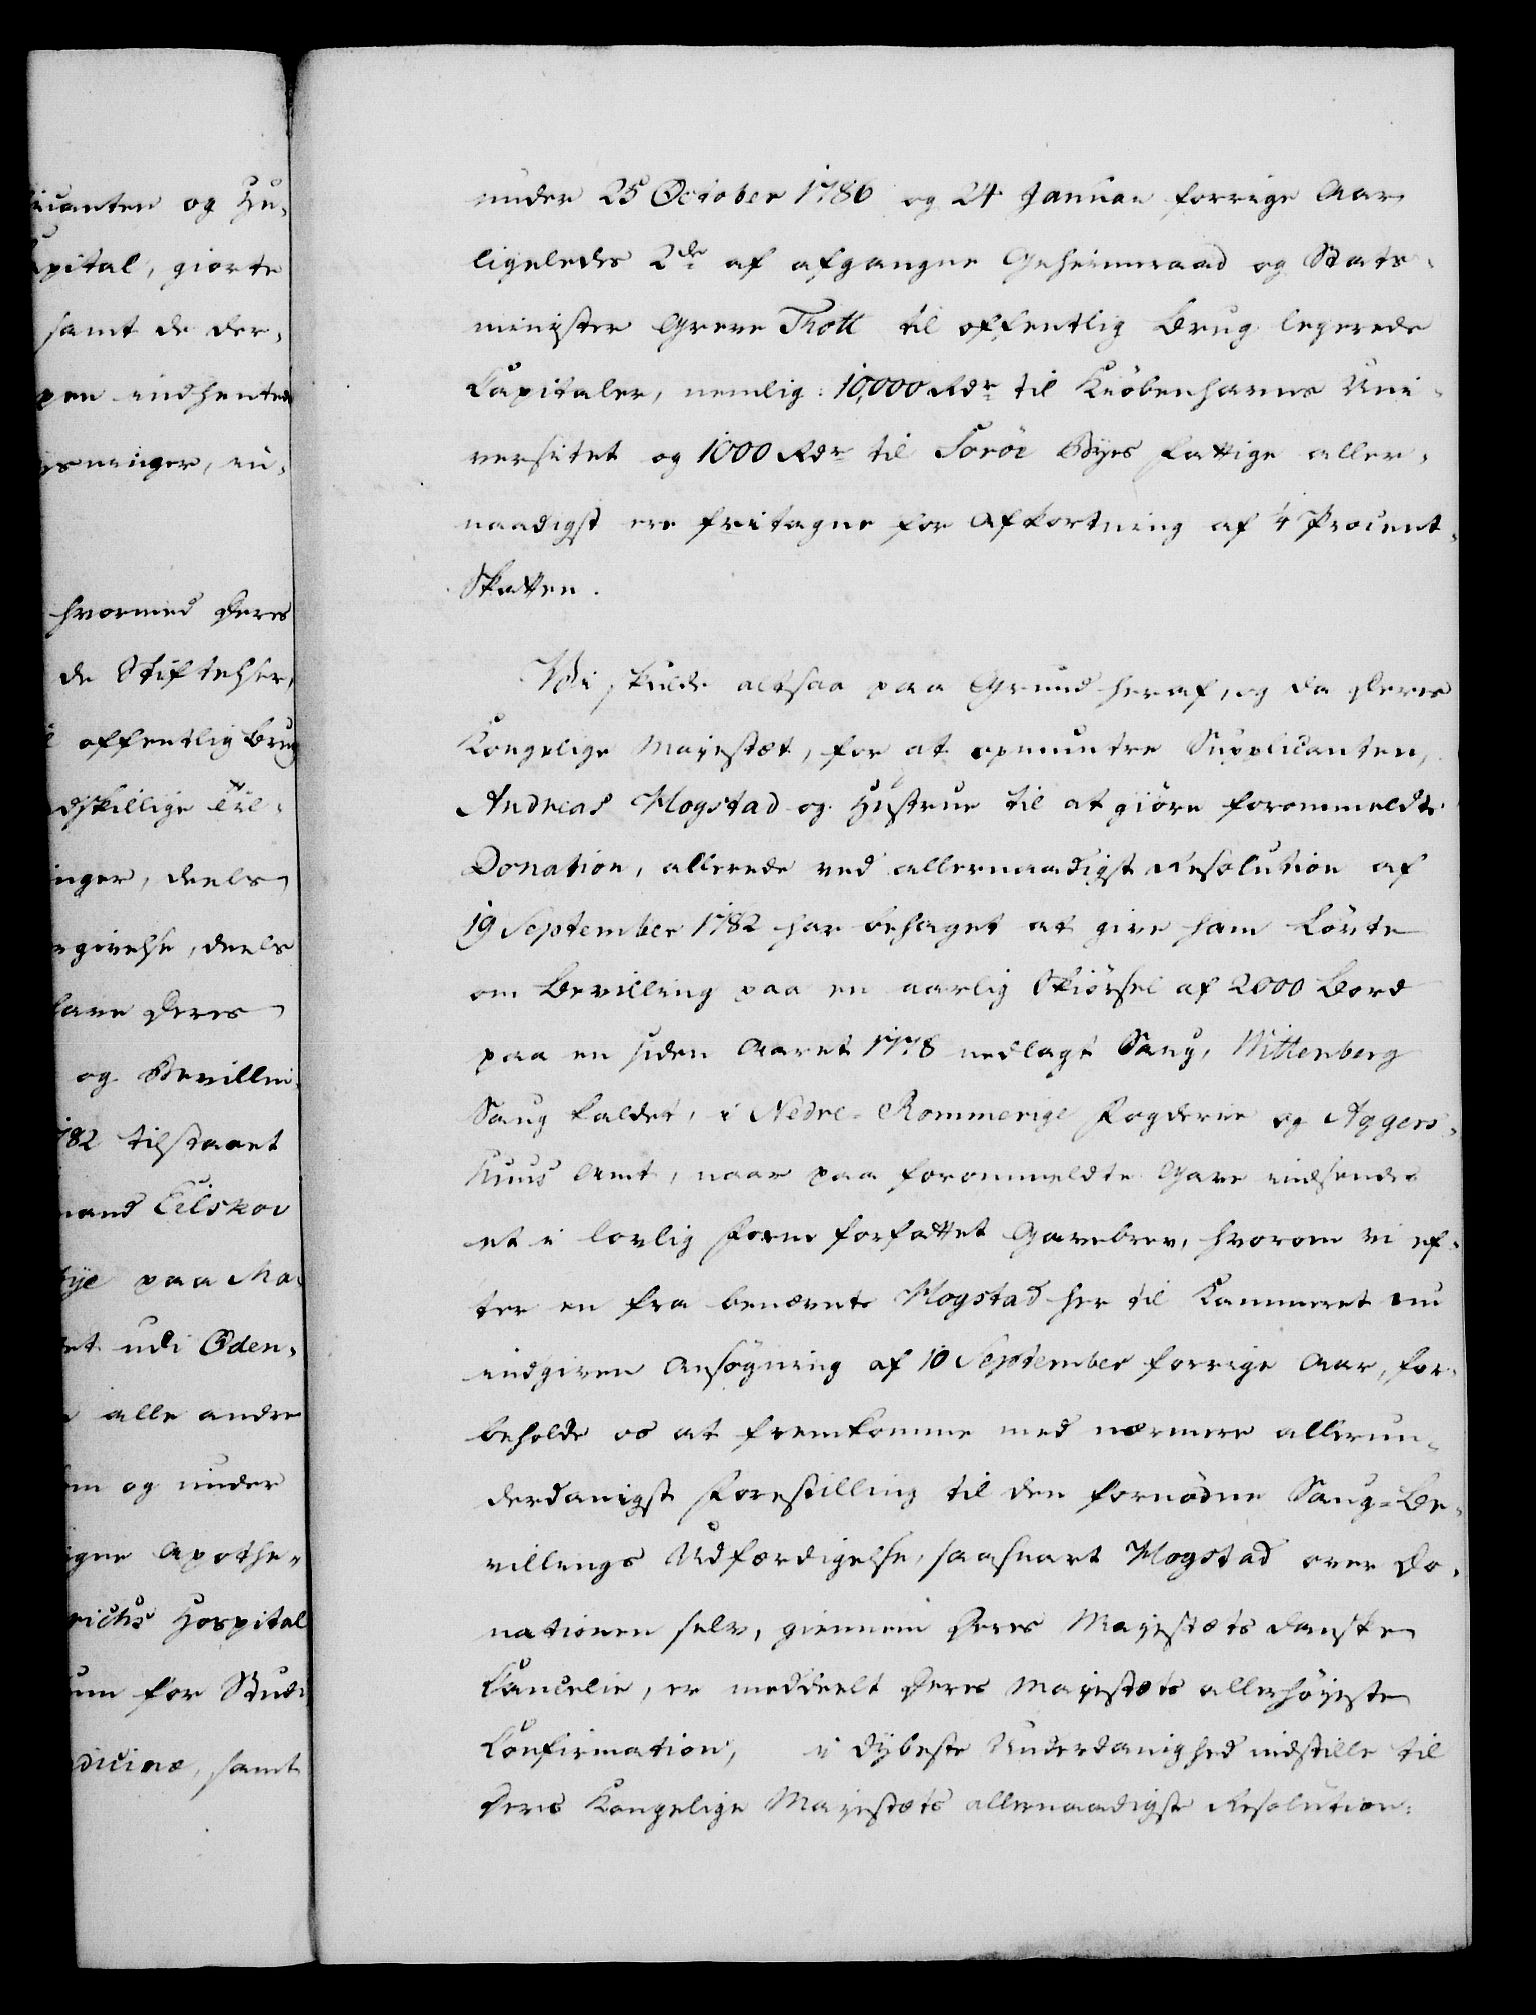 licanten og Hu-
spital, giorte
samt de der-
pen indhentede
ysninger, in-
hvormed Deres
de Stiftelser,
offentlig Brug
dskillige Til-
inger, deels
rgivelse, deels
have Deres
og Bevillin-
782 tilstaaet
mand Eilskov
tye paa Ma-
tet udi Oden-
alle andre
og under
igne Apothe-
richs Hospital
um for Stude
dicinæ, samt
under 25 October 1786 og 24 Januar forrige Aar
ligeledes 2de af afgangne Geheimeraad og Stats-
minister Greve Thott til offentlig Brug legerede
Capitaler, nemlig: 10,000 Rdr til Kiöbenhavns Uni-
versitet og 1000 Rdr til Soröe Byes Fattige aller-
naadigst ere fritagne for Afkortning af ¼ Procent-
Skatten.
Vi skulde altsaa paa Grund heraf, og da Deres
Kongelige Mayestæt, for at opmuntre Supplicanten,
Andreas Mogstad og Hustrue til at giöre forommeldte
Donation, allerede ved allernaadigst Resolution af
19 September 1782 har behaget at give ham Lövte
om Bevilling paa en aarlig Skiörsel af 2000 Bord
paa en siden Aaret 1778 nedlagt Saug, Wittenberg
Saug kaldet, i Nedre-Rommerige Fogderie og Aggers-
huus Amt, naar paa forommeldte Gave indsendes
et i lovlig Form forfattet Gavebrev, hvorom vi ef-
ter en fra benævnte Mogstad her til Kammeret nu
indgiven Ansögning af 10 September forrige Aar, for-
beholde os at fremkomme med nærmere allerun-
derdanigst Forestilling til den fornödne Saug-Be-
villings Udfærdigelse, saasnart Mogstad over Do-
nationen selv, giennem Deres Mayestæts danske
Cancelie, er meddeelt Deres Mayestæts allerhöyeste
Confirmation, i dybeste Underdanighed indstille til
Deres Kongelige Mayestæts allernaadigste Resolution: